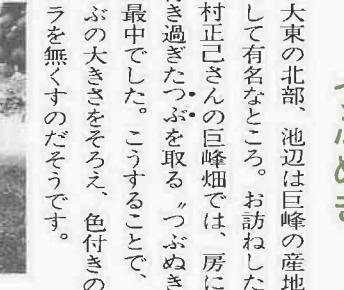 つぶぬき
大東の北部、池辺は巨峰の産地
して有名なところ。お訪ねした
村正己さんの巨峰畑では、房に
き過ぎたつぶを取る〝つぶぬき
最中でした。こうすることで、
ぶの大きさをそろえ、色付きの
ラを無くすのだそうです。